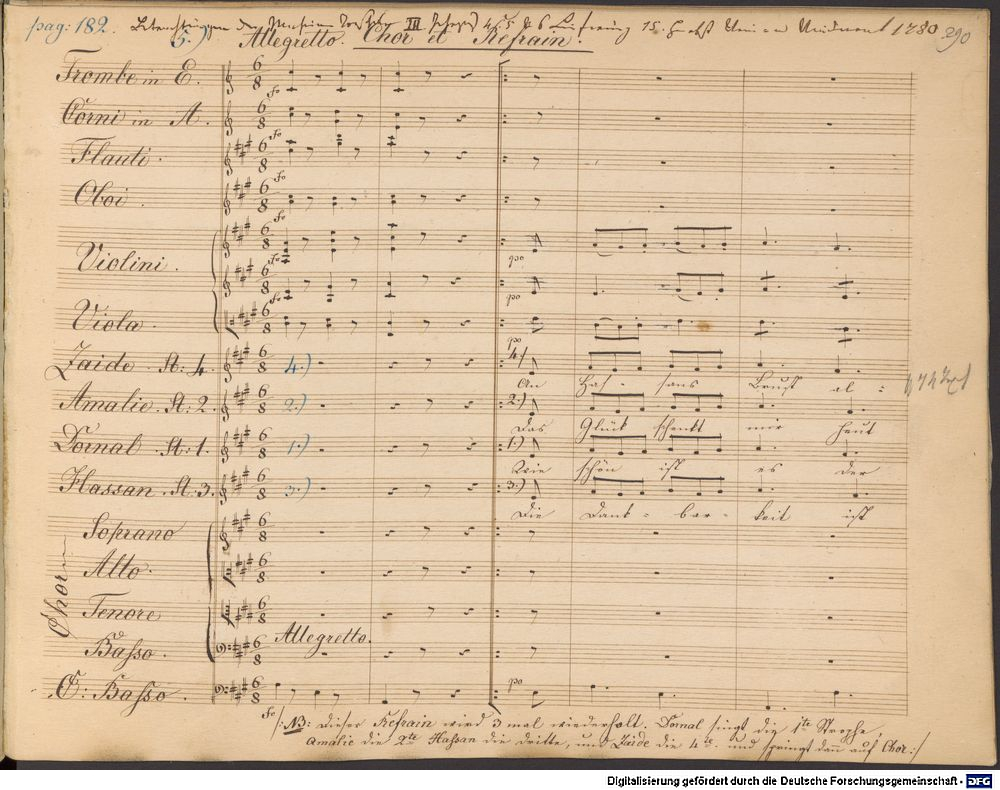 pag: 182. III 1780 290
5.) Allegretto. Chor et Refrain.
Trombe in E.
Corni in A.
Flauti.
Oboi.
Violini.
Viola.
Zaide. St: 4. 4.) 4.)
An Has - sans Brust al -
Amalie. St: 2. 2.) 2.)
Das Glück schenkt mir heut
Dornal. St: 1. 1.) 1.)
Wie schön ist es der
Hassan. St: 3. 3.) 3.)
Die Dank - bar - keit ist
Chor
Soprano
Alto.
Tenore
Basso.
Allegretto.
C: Basso.
/: NB: Dieser Refrain wird 3 mal wiederholt. Dornal singt die 1te Strophe,
Amalie die 2te Hassan die dritte, und Zaide die 4te. und springt dann auf Chor :/
Digitalisierung gefördert durch die Deutsche Forschungsgemeinschaft - DFG